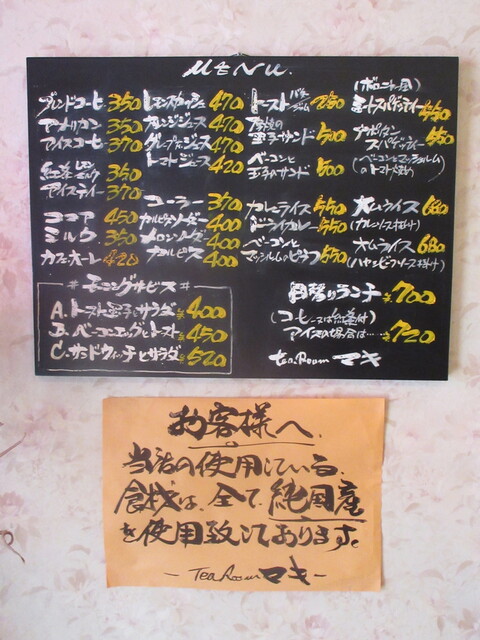 MENU.
ブレンドコーヒ 350
アメリカン 350
アイスコーヒ 370
紅茶 レモン ミルク 350
アイスティー 370
ココア 450
ミルク 350
カフェオーレ 420
レモンスカッシュ 470
オレンジジュース 470
グレープジュース 470
トマトジュース 420
コーラー 370
カルピスソーダー 400
メロンソーダー 400
カルピス 400
トースト バター ジャム 280
玉子サンド 500
ベーコンと
玉子のサンド 600
カレーライス 550
ドライカレー 550
ベーコンと
マッシュルームのピラフ 550
(ボロニヤ風)
ミートスパゲティー 550
ナポリタン
スパゲティー 550
(ベーコンとマッシュルーム
のトマト炒め)
オムライス 680
(カレーソース掛け)
オムライス 680
(ハヤシビーフソース掛け)
日替りランチ 700
(コーヒー又は紅茶付)
アイスの場合は…… 720
tea.Room マキ
モーニングサービス
A. トースト玉子とサラダ 400
B. ベーコンエッグとトースト 450
C. サンドウィッチとサラダ 520
お客様へ、
当店の使用している、
食材は、全て、純国産
を使用致しております。
- Tea Room マキ -